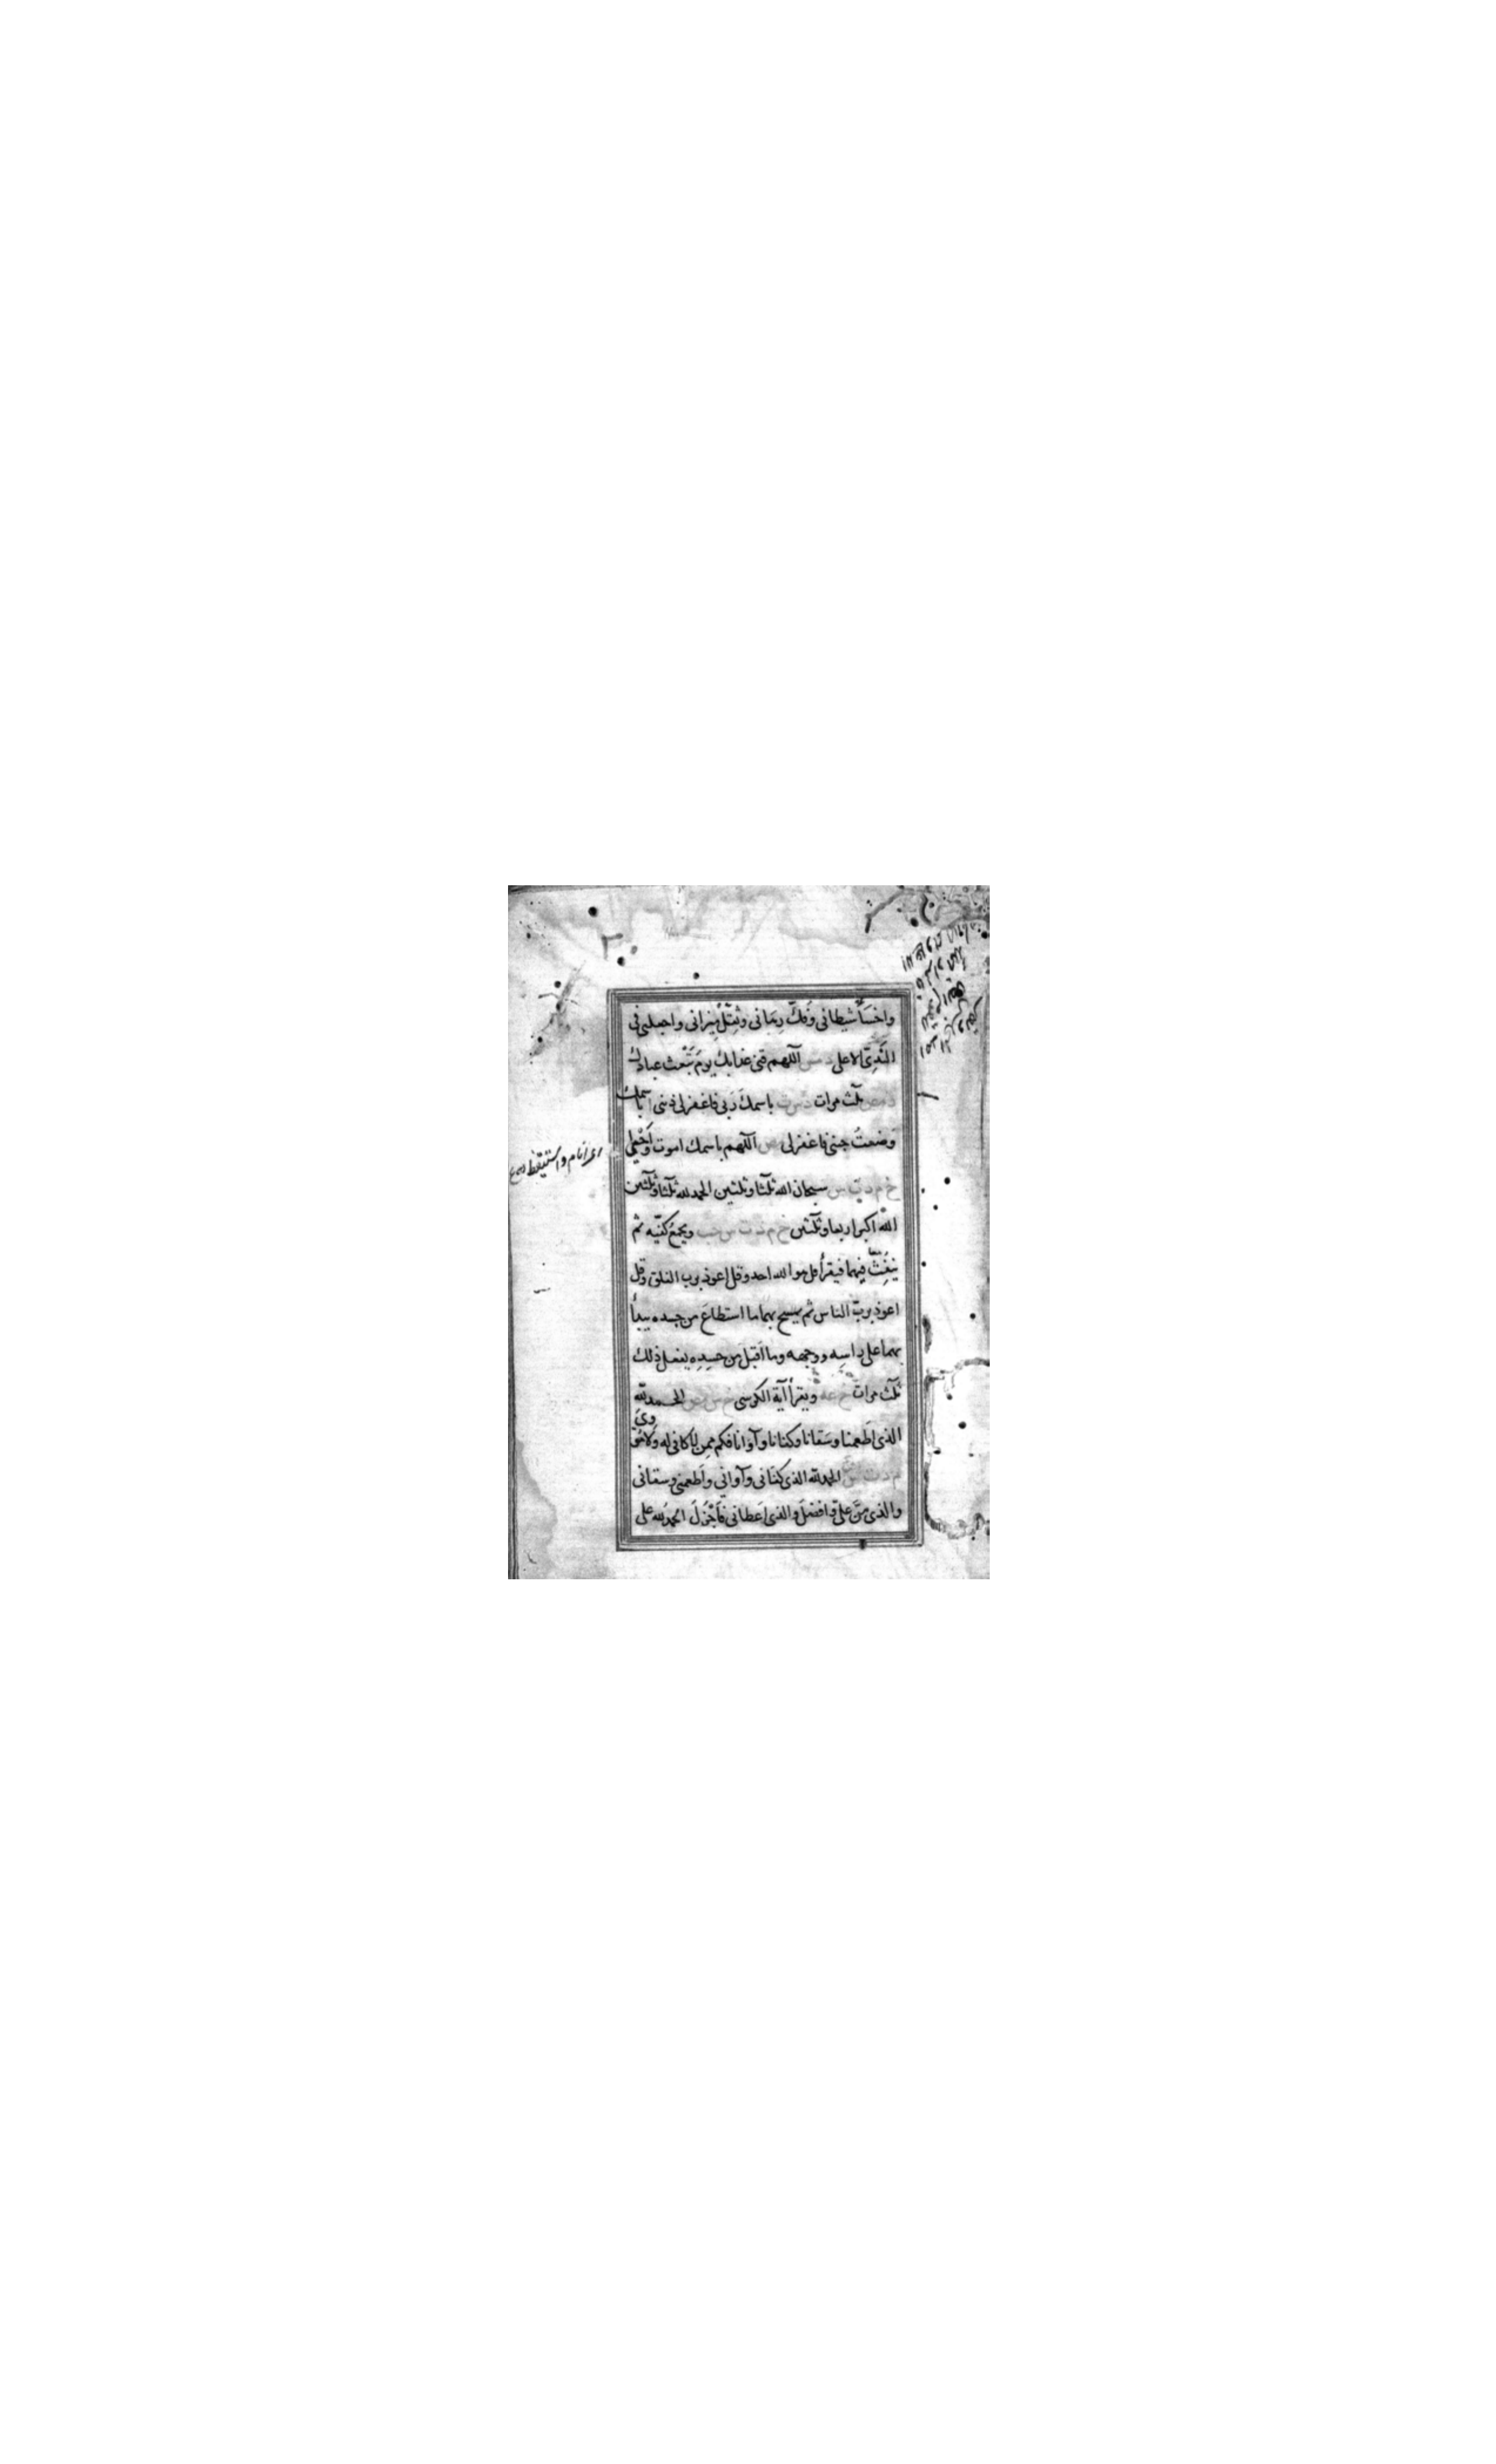 واخسَأ شيطانى وفُكَّ رِهَانى وثقّل ميزانى واجعلنى فى
النَّدِىّ الاعلى اللهم قنى عذابك يومَ تَبْعث عبادك
ثلٰث مرات باسمك رَبى فاغفرلى ذنبى باسمك
وَضعتُ جنبى فاغفرلى اللهم باسمك اموت واَحْيٰى
خ م د ت س سبحان الله ثلٰثا وثلٰثين الحمد لله ثلٰثا وثلٰثين
الله اكبر اربعا وثلٰثين خ م د ت س حب ويجمعُ كفّيه ثم
ينفُثُ فيهما فيقرأ قل هو الله احد وقل اعوذ برب الفلق وقل
اعوذ بربّ الناس ثم يمسح بهما ما استطاعَ من جسده يبدأ
بهما على راسِه ووجهه وما اَقبلَ من جسدِه يفعل ذلك
ثلٰث مرات خ عه ويقرأ آية الكرسى الحمد لله
الذى اَطعمنا وسَقانا وكفانا وآوانا فكم ممن لا كافى له ولا مُؤْوِىَ
م د ت س الحمد لله الذى كفَانى وآوانى واَطعمنى وسقانى
والذى مَنَّ علىّ وافضلَ والذى اَعطانى فاَجْزَلَ الحمد لله على
انام واستيقظ